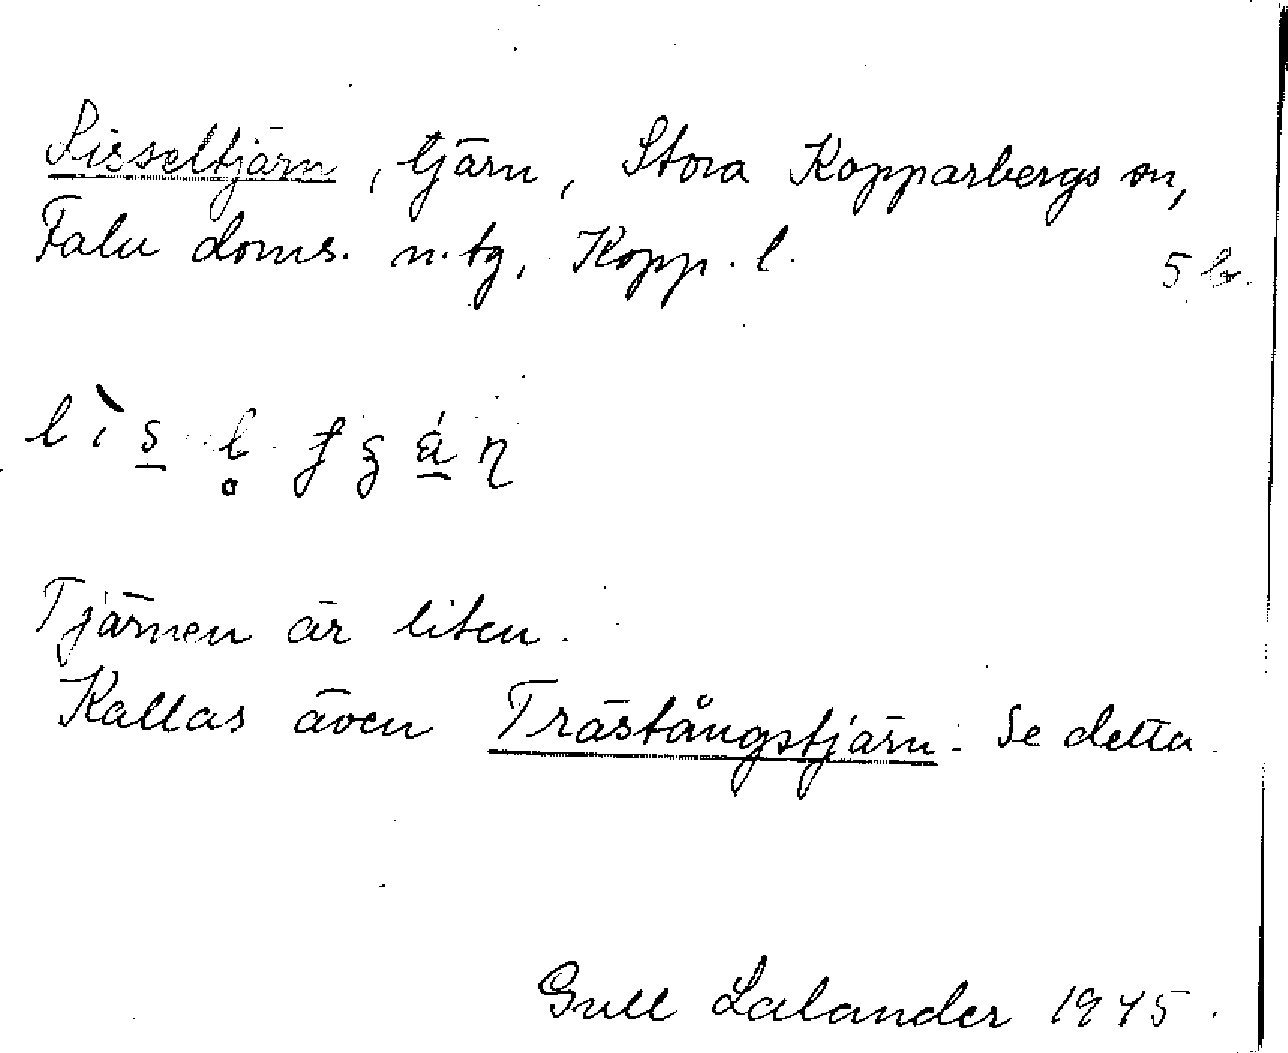 Lisseltjärn, tjärn, Stora Kopparbergs sn,
Falu doms. n. tg, Kopp. l.
5 b.
Tjärnen är liten.
Kallas även Trästångstjärn. Se detta.
Gull Lalander 1945.